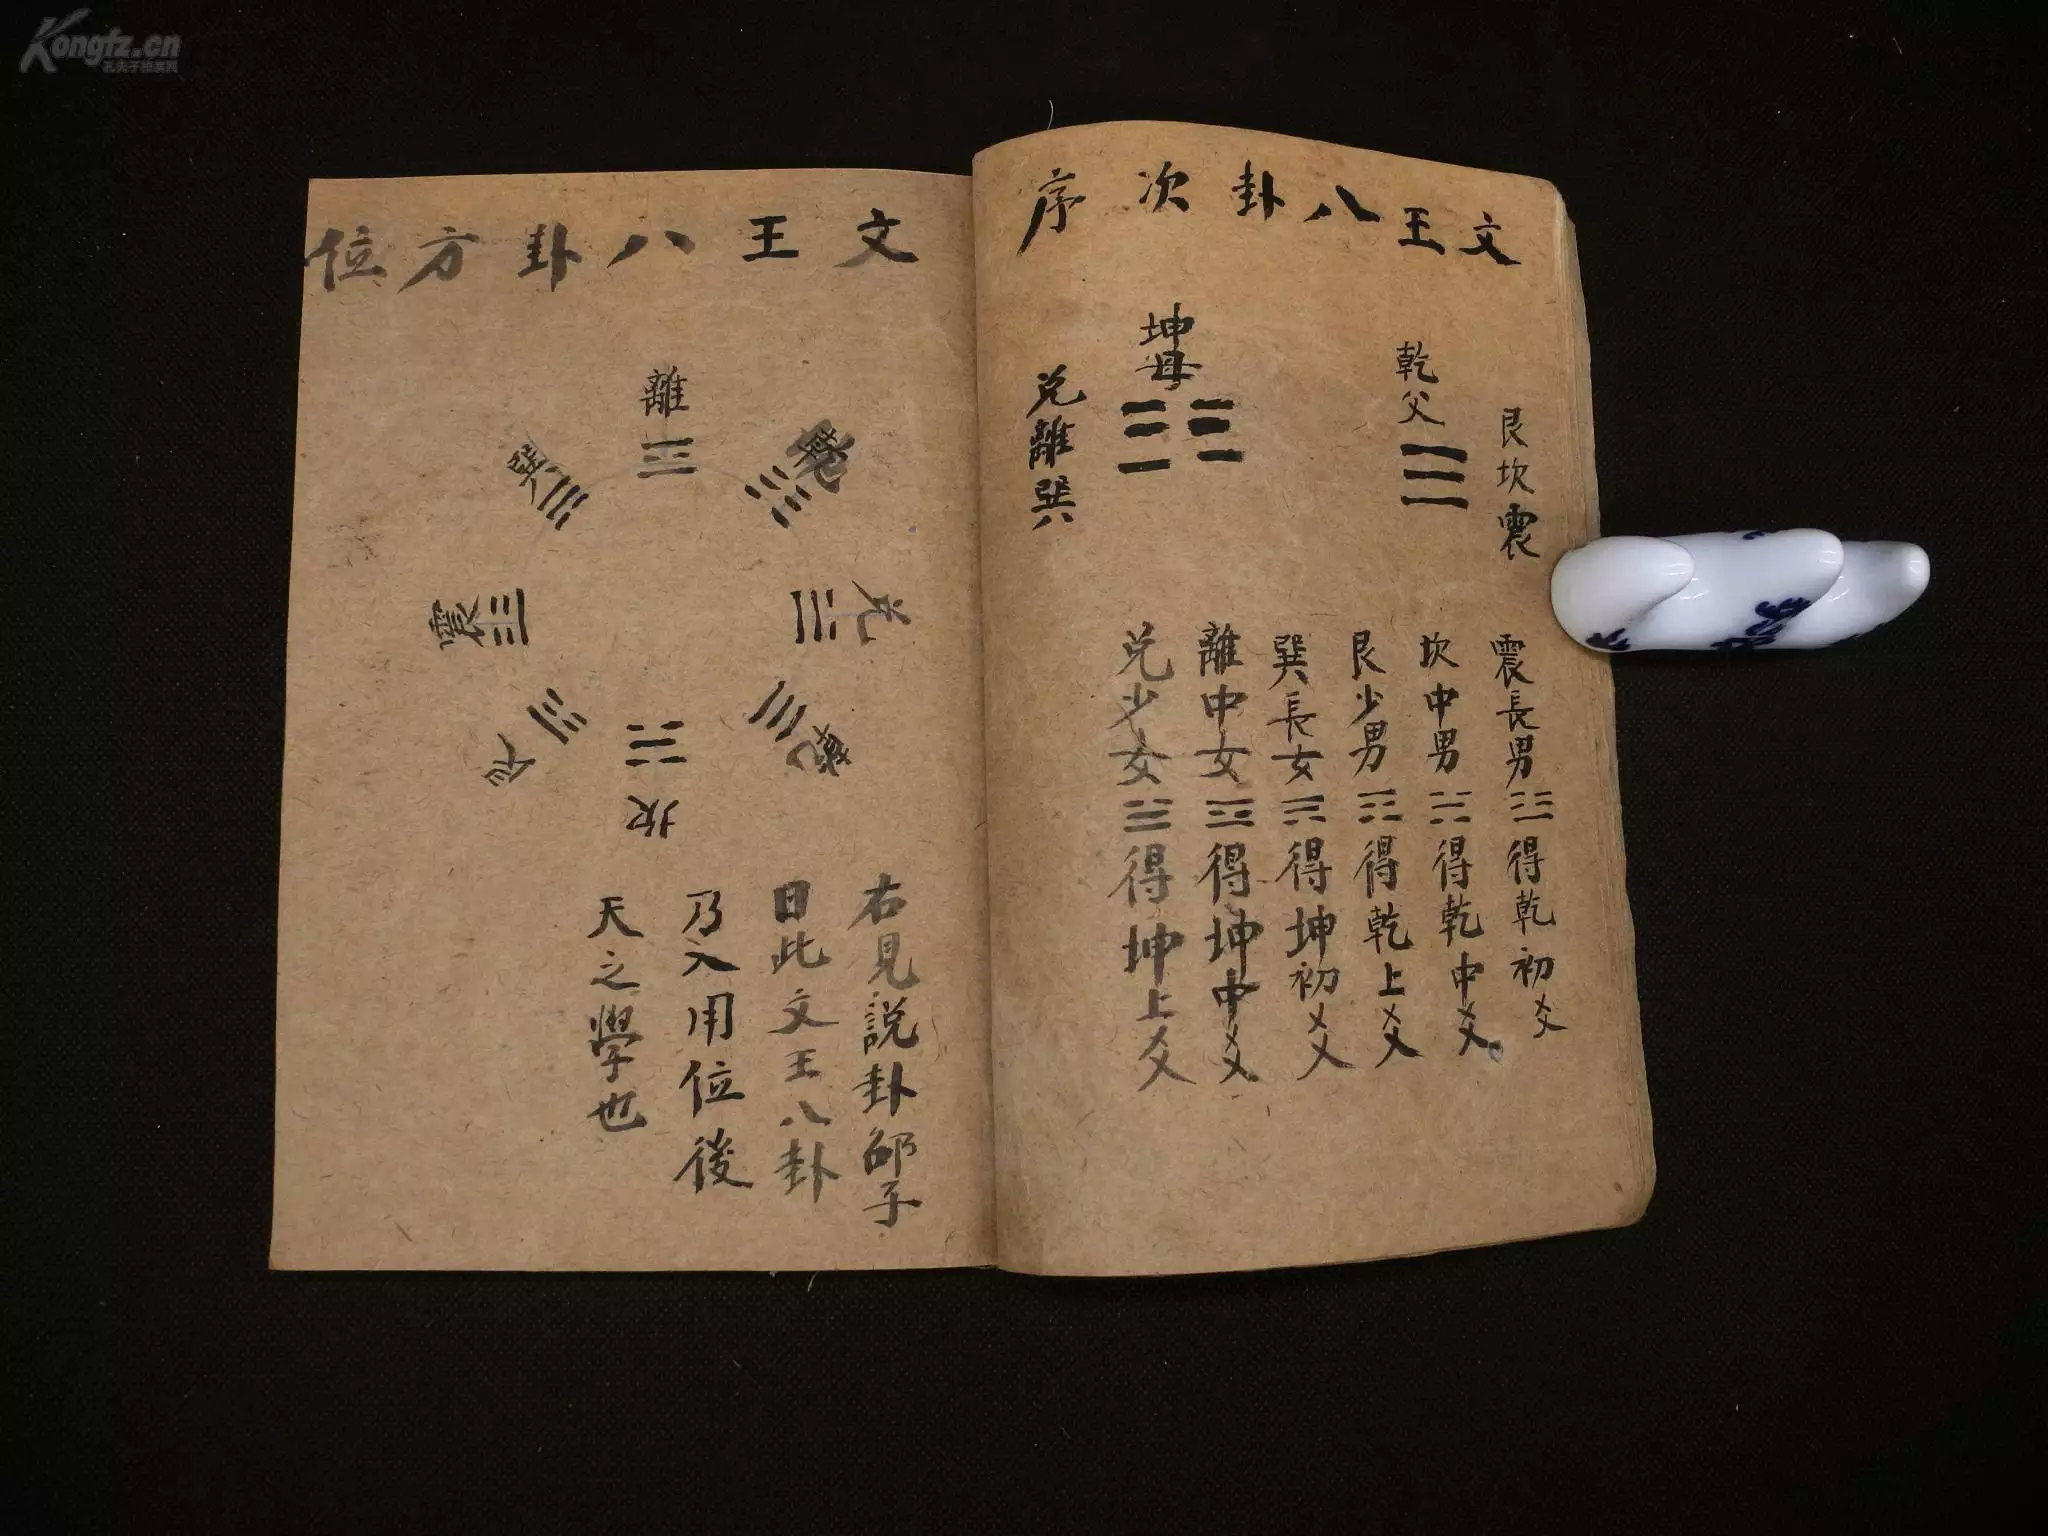 Kongfz.cn
孔夫子拍卖网
文王八卦次序
艮坎震
乾父
坤母
兑離巽
震長男☳得乾初爻
坎中男☵得乾中爻
艮少男☶得乾上爻
巽長女☴得坤初爻
離中女☲得坤中爻
兑少女☱得坤上爻
文王八卦方位
離
兑
乾
坎
震
巽
右見說卦邵子
曰此文王八卦
乃入用位後
天之學也